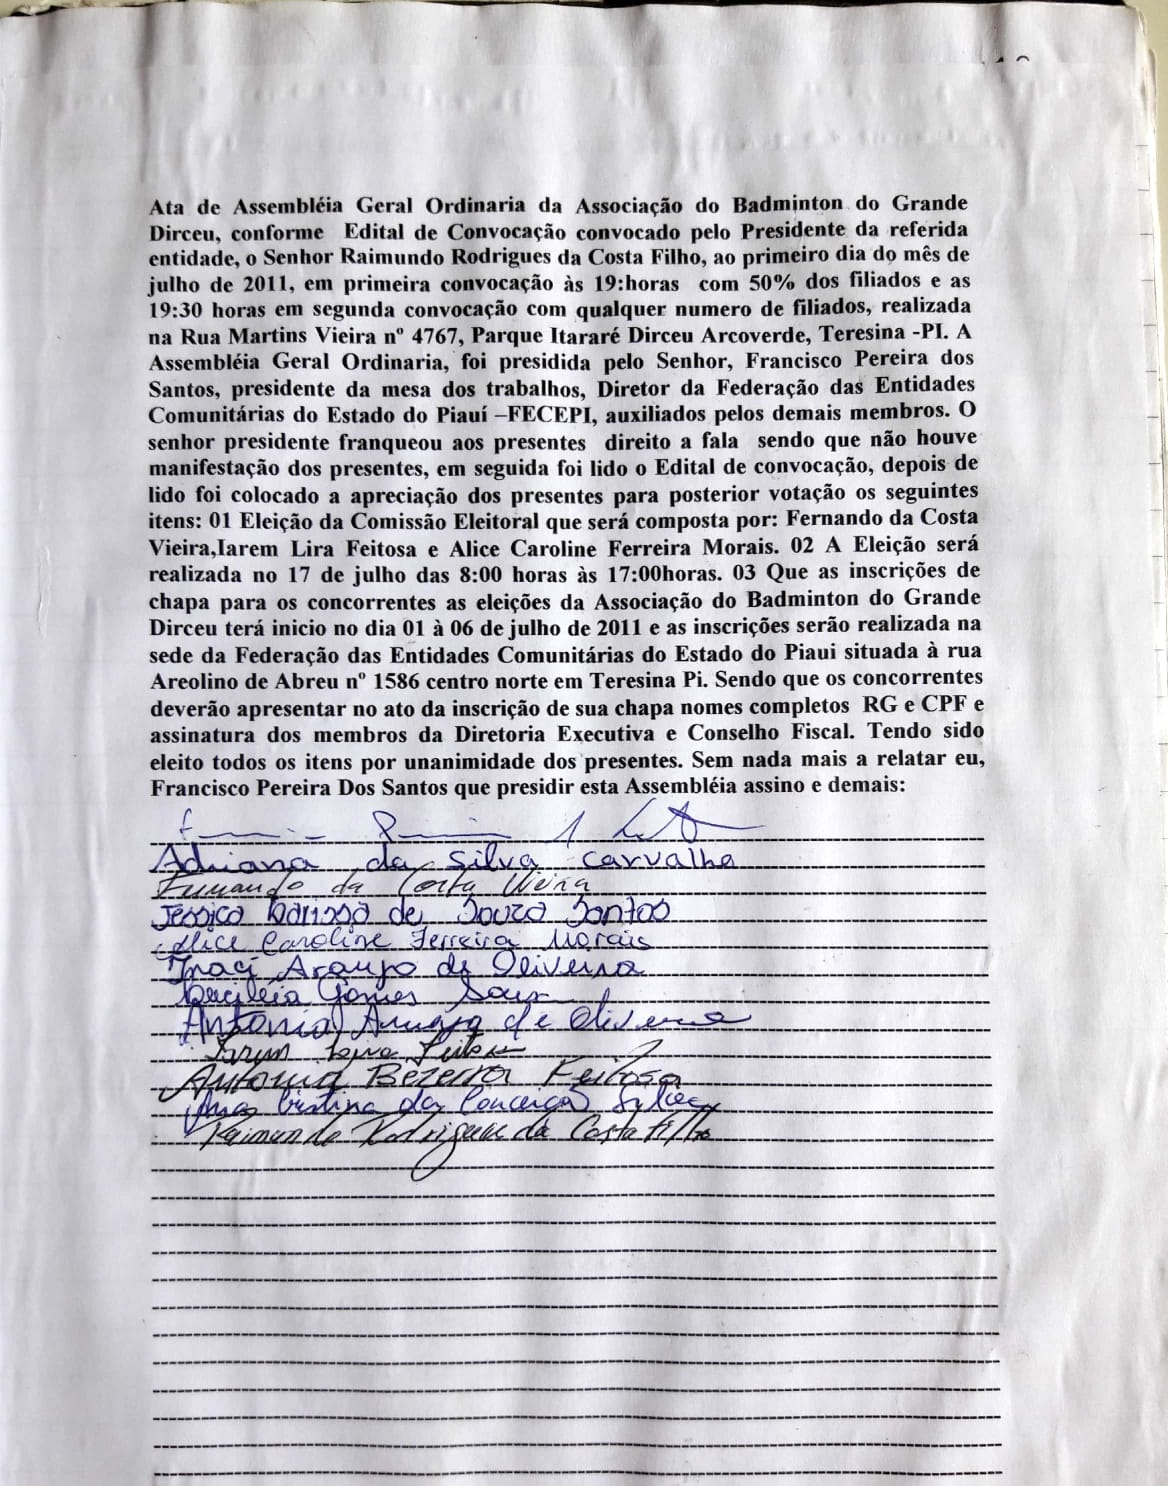 Ata de Assembléia Geral Ordinaria da Associação do Badminton do Grande
Dirceu, conforme Edital de Convocação convocado pelo Presidente da referida
entidade, o Senhor Raimundo Rodrigues da Costa Filho, ao primeiro dia do mês de
julho de 2011, em primeira convocação às 19:horas com 50% dos filiados e as
19:30 horas em segunda convocação com qualquer numero de filiados, realizada
na Rua Martins Vieira nº 4767, Parque Itararé Dirceu Arcoverde, Teresina -PI. A
Assembléia Geral Ordinaria, foi presidida pelo Senhor, Francisco Pereira dos
Santos, presidente da mesa dos trabalhos, Diretor da Federação das Entidades
Comunitárias do Estado do Piauí –FECEPI, auxiliados pelos demais membros. O
senhor presidente franqueou aos presentes direito a fala sendo que não houve
manifestação dos presentes, em seguida foi lido o Edital de convocação, depois de
lido foi colocado a apreciação dos presentes para posterior votação os seguintes
itens: 01 Eleição da Comissão Eleitoral que será composta por: Fernando da Costa
Vieira,Iarem Lira Feitosa e Alice Caroline Ferreira Morais. 02 A Eleição será
realizada no 17 de julho das 8:00 horas às 17:00horas. 03 Que as inscrições de
chapa para os concorrentes as eleições da Associação do Badminton do Grande
Dirceu terá inicio no dia 01 à 06 de julho de 2011 e as inscrições serão realizada na
sede da Federação das Entidades Comunitárias do Estado do Piaui situada à rua
Areolino de Abreu nº 1586 centro norte em Teresina Pi. Sendo que os concorrentes
deverão apresentar no ato da inscrição de sua chapa nomes completos RG e CPF e
assinatura dos membros da Diretoria Executiva e Conselho Fiscal. Tendo sido
eleito todos os itens por unanimidade dos presentes. Sem nada mais a relatar eu,
Francisco Pereira Dos Santos que presidir esta Assembléia assino e demais:
Adriana da Silva Carvalho
Fernando da Costa Vieira
Jessica Larissa de Souza Santos
Alice Caroline Ferreira Morais
Iraci Araujo de Oliveira
Gomes Sousa
Antonia Araujo de Oliveira
Antonia Bezerra Feitosa
Ana Cristina da Conceição Silva
Raimundo Rodrigues da Costa Filho